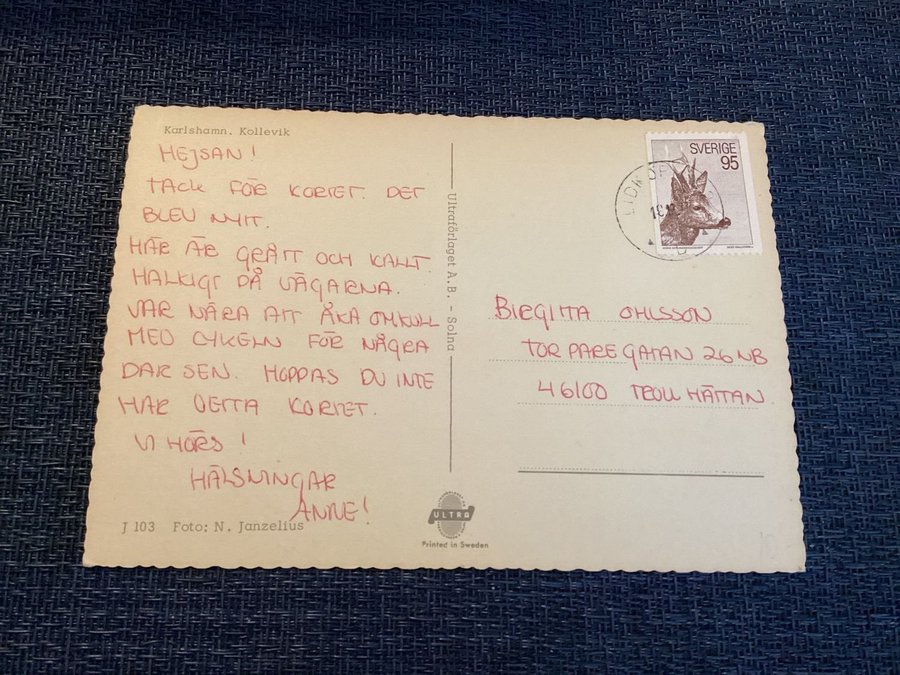 Karlshamn. Kollevik
HEJSAN!
TACK FÖR KORTET. DET
BLEV NYTT.
HÄR ÄR GRÅTT OCH KALLT.
HALKIGT PÅ VÄGARNA.
VAR NÄRA ATT ÅKA OMKULL
MED CYKELN FÖR NÅGRA
DAR SEN. HOPPAS DU INTE
HAR DETTA KORTET.
VI HÖRS!
HÄLSNINGAR
ANNE!
J 103 Foto: N. Janzelius
Ultraförlaget A.B. - Solna
ULTRA
Printed in Sweden
SVERIGE
95
BIRGITTA OHLSSON
TORPAREGATAN 26 NB
46100 TROLLHÄTTAN